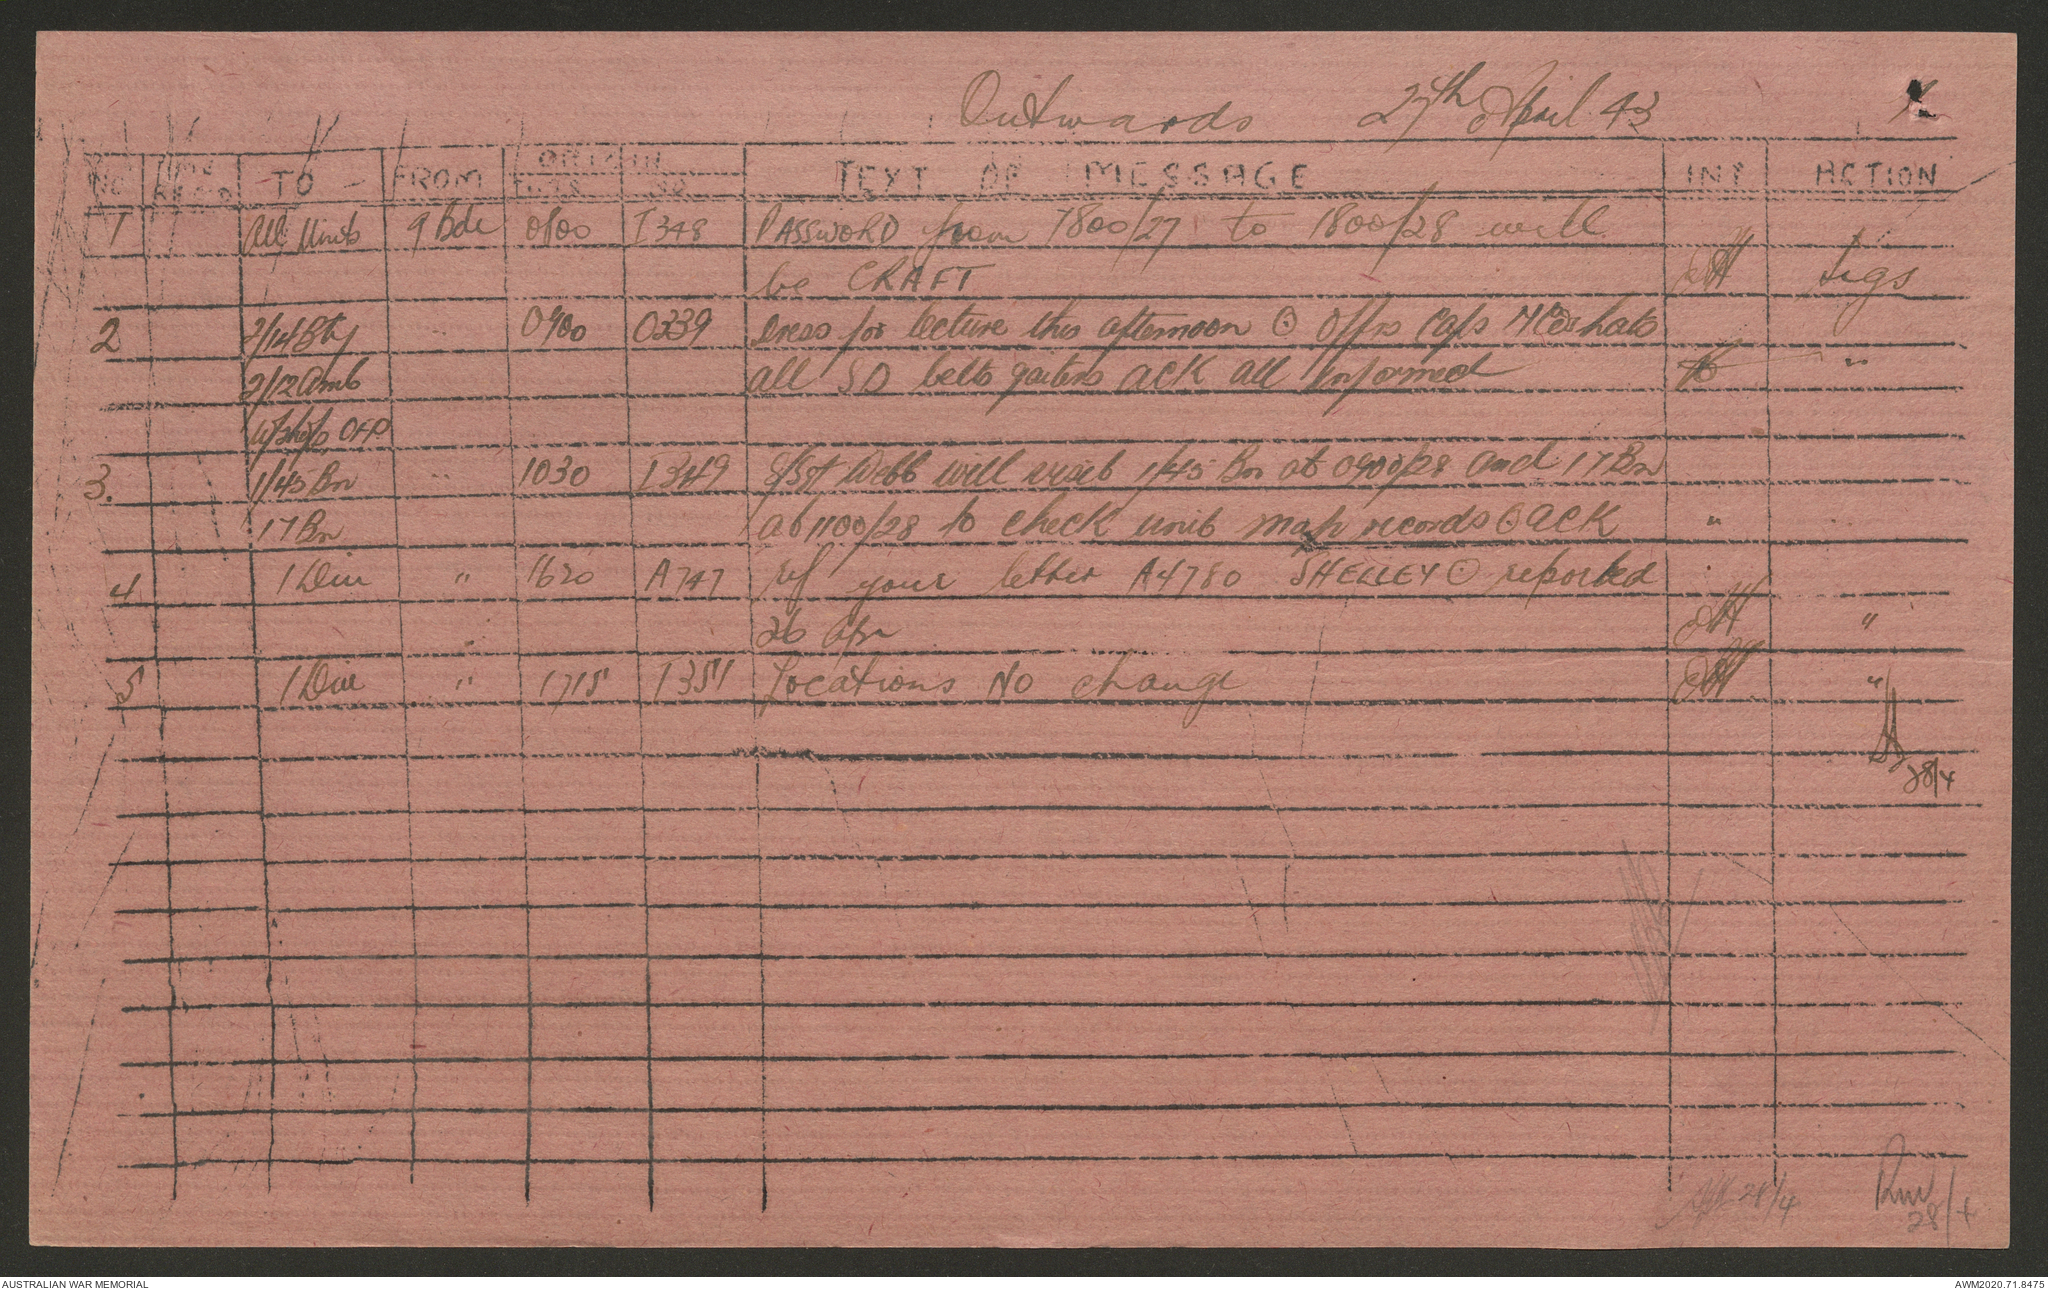 Outwards 27th April 43
NO TIME REC'D TO FROM ORIGIN TIME NO TEXT OF MESSAGE INT ACTION
1 All Units 9 Bde 0800 I348 PASSWORD from 1800/27 to 1800/28 will
be CRAFT Sigs
2 2/14 Bty 0900 O339 Dress for lecture this afternoon ⊙ Offrs Caps NCOs hats
2/12 Amb all SD belts gaiters ACK all informed "
W/shops OFP
3. 1/45 Bn " 1030 I349 S/Sgt Webb will visit 1/45 Bn at 0900/28 and 17 Bn
17 Bn at 1100/28 to check unit map records ⊙ ACK "
4 1 Div " 1620 A747 ref your letter A4780 SHELLEY ⊙ reported
26 Apr "
5 1 Div " 1715 I351 Locations No change "
28/4
28/4
28/4
AUSTRALIAN WAR MEMORIAL AWM2020.71.8475